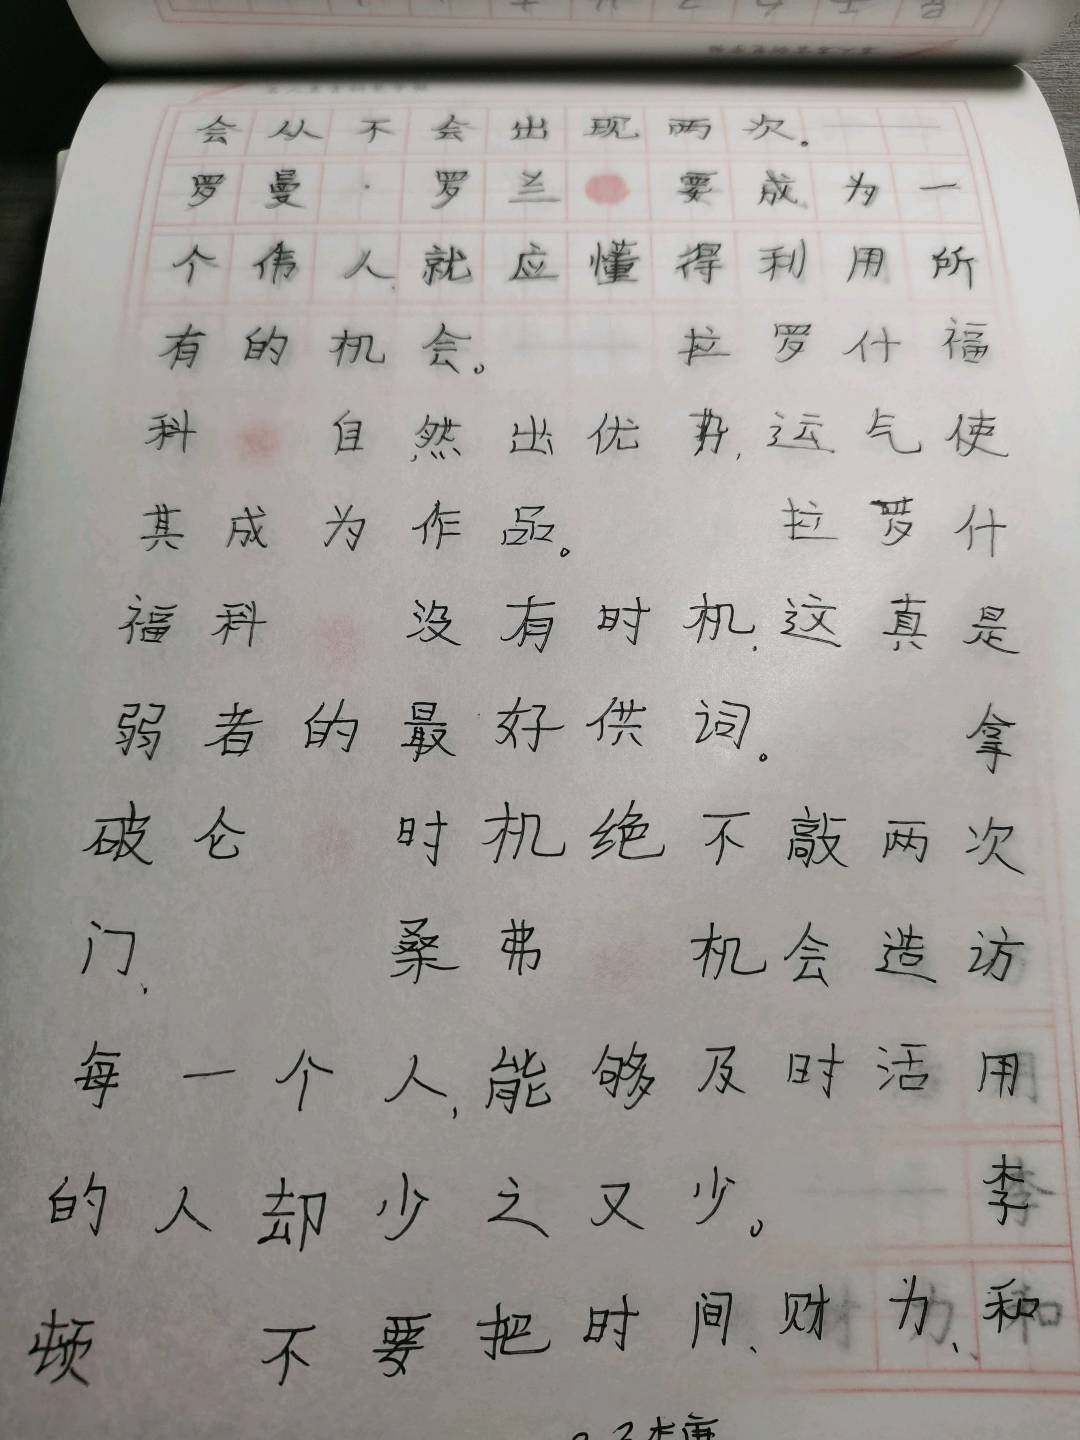 会从不会出现两次。——
罗曼·罗兰 要成为一
个伟人,就应懂得利用所
有的机会。——拉罗什福
科 自然出优势,运气使
其成为作品。 拉罗什
福科 没有时机,这真是
弱者的最好供词。 拿
破仑 时机绝不敲两次
门、 桑弗 机会造访
每一个人,能够及时活用
的人却少之又少。——李
顿 不要把时间、财力、和